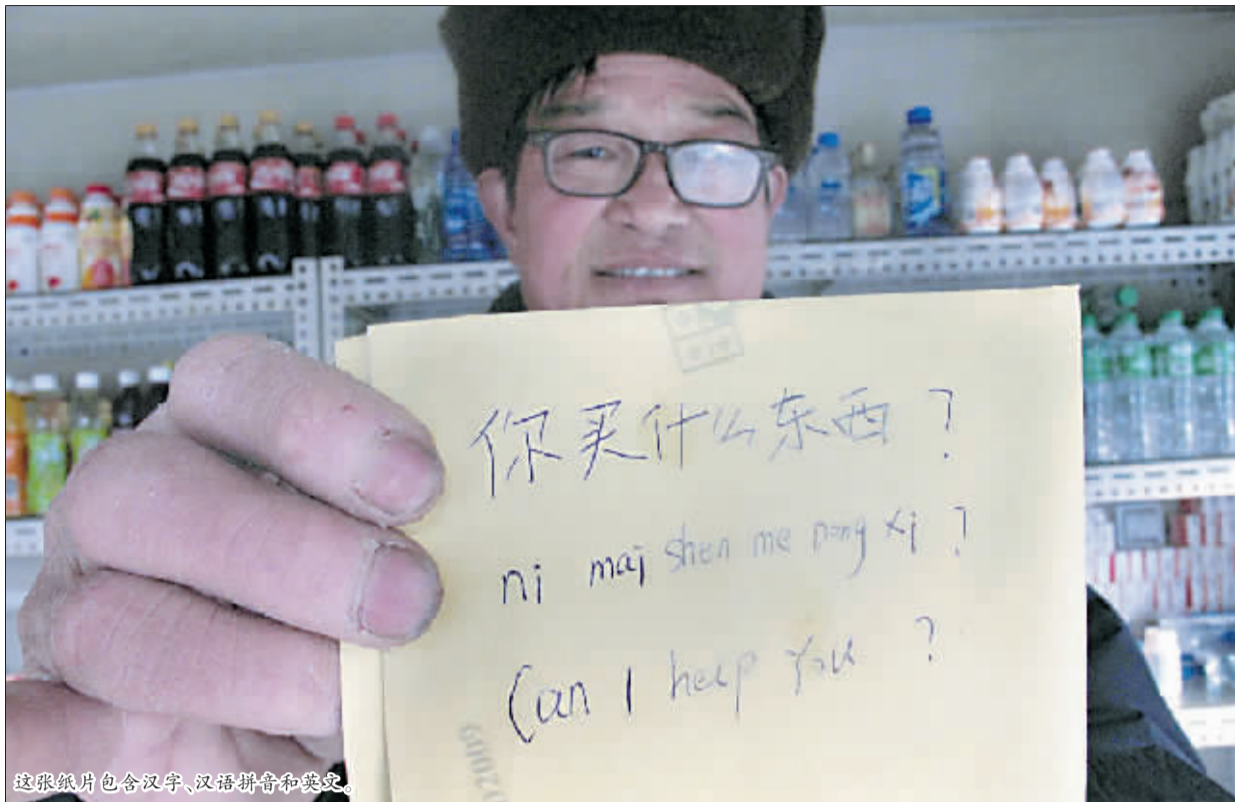 你买什么东西？
ni mai shen me dong xi ?
Can I help you ?
这张纸片包含汉字、汉语拼音和英文。